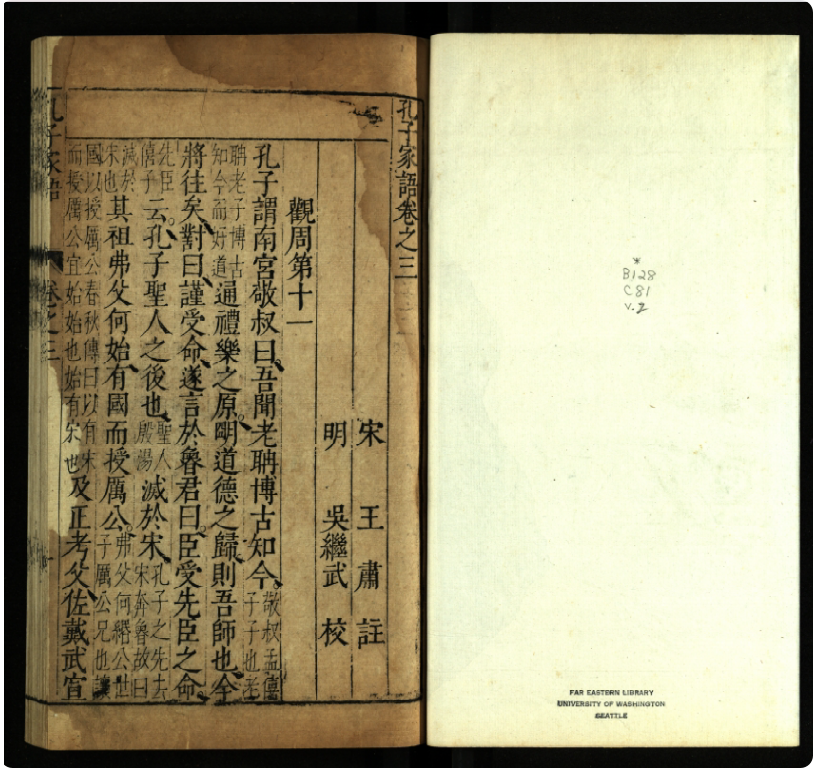 *
B128
C81
v.2
FAR EASTERN LIBRARY
UNIVERSITY OF WASHINGTON
SEATTLE
孔子家語卷之三
宋 王肅 註
明 吳繼武 校
觀周第十一
孔子謂南宮敬叔曰、吾聞老聃博古知今。敬叔孟僖子子也老
聃老子博古知今而好道通禮樂之原。明道德之歸、則吾師也、今
將往矣、對曰、謹受命、遂言於魯君曰、臣受先臣之命。
先臣僖子云、孔子聖人之後也、聖人殷湯滅於宋、孔子之先去宋奔魯故曰
滅於宋也其祖弗父何始、有國而授厲公、弗父何緡公世子厲公兄也讓
國以授厲公春秋傳曰以有宋而授厲公宜始始也始有宋也及正考父、佐戴武宣
孔子家語 卷之三